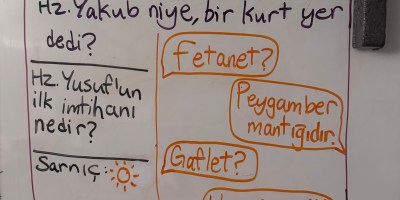 Hz. Yakub niye, bir kurt yer
dedi?
Hz. Yusuf'un
ilk imtihanı
nedir?
Sarnıç:
Fetanet?
Peygamber
mantığıdır.
Gaflet?